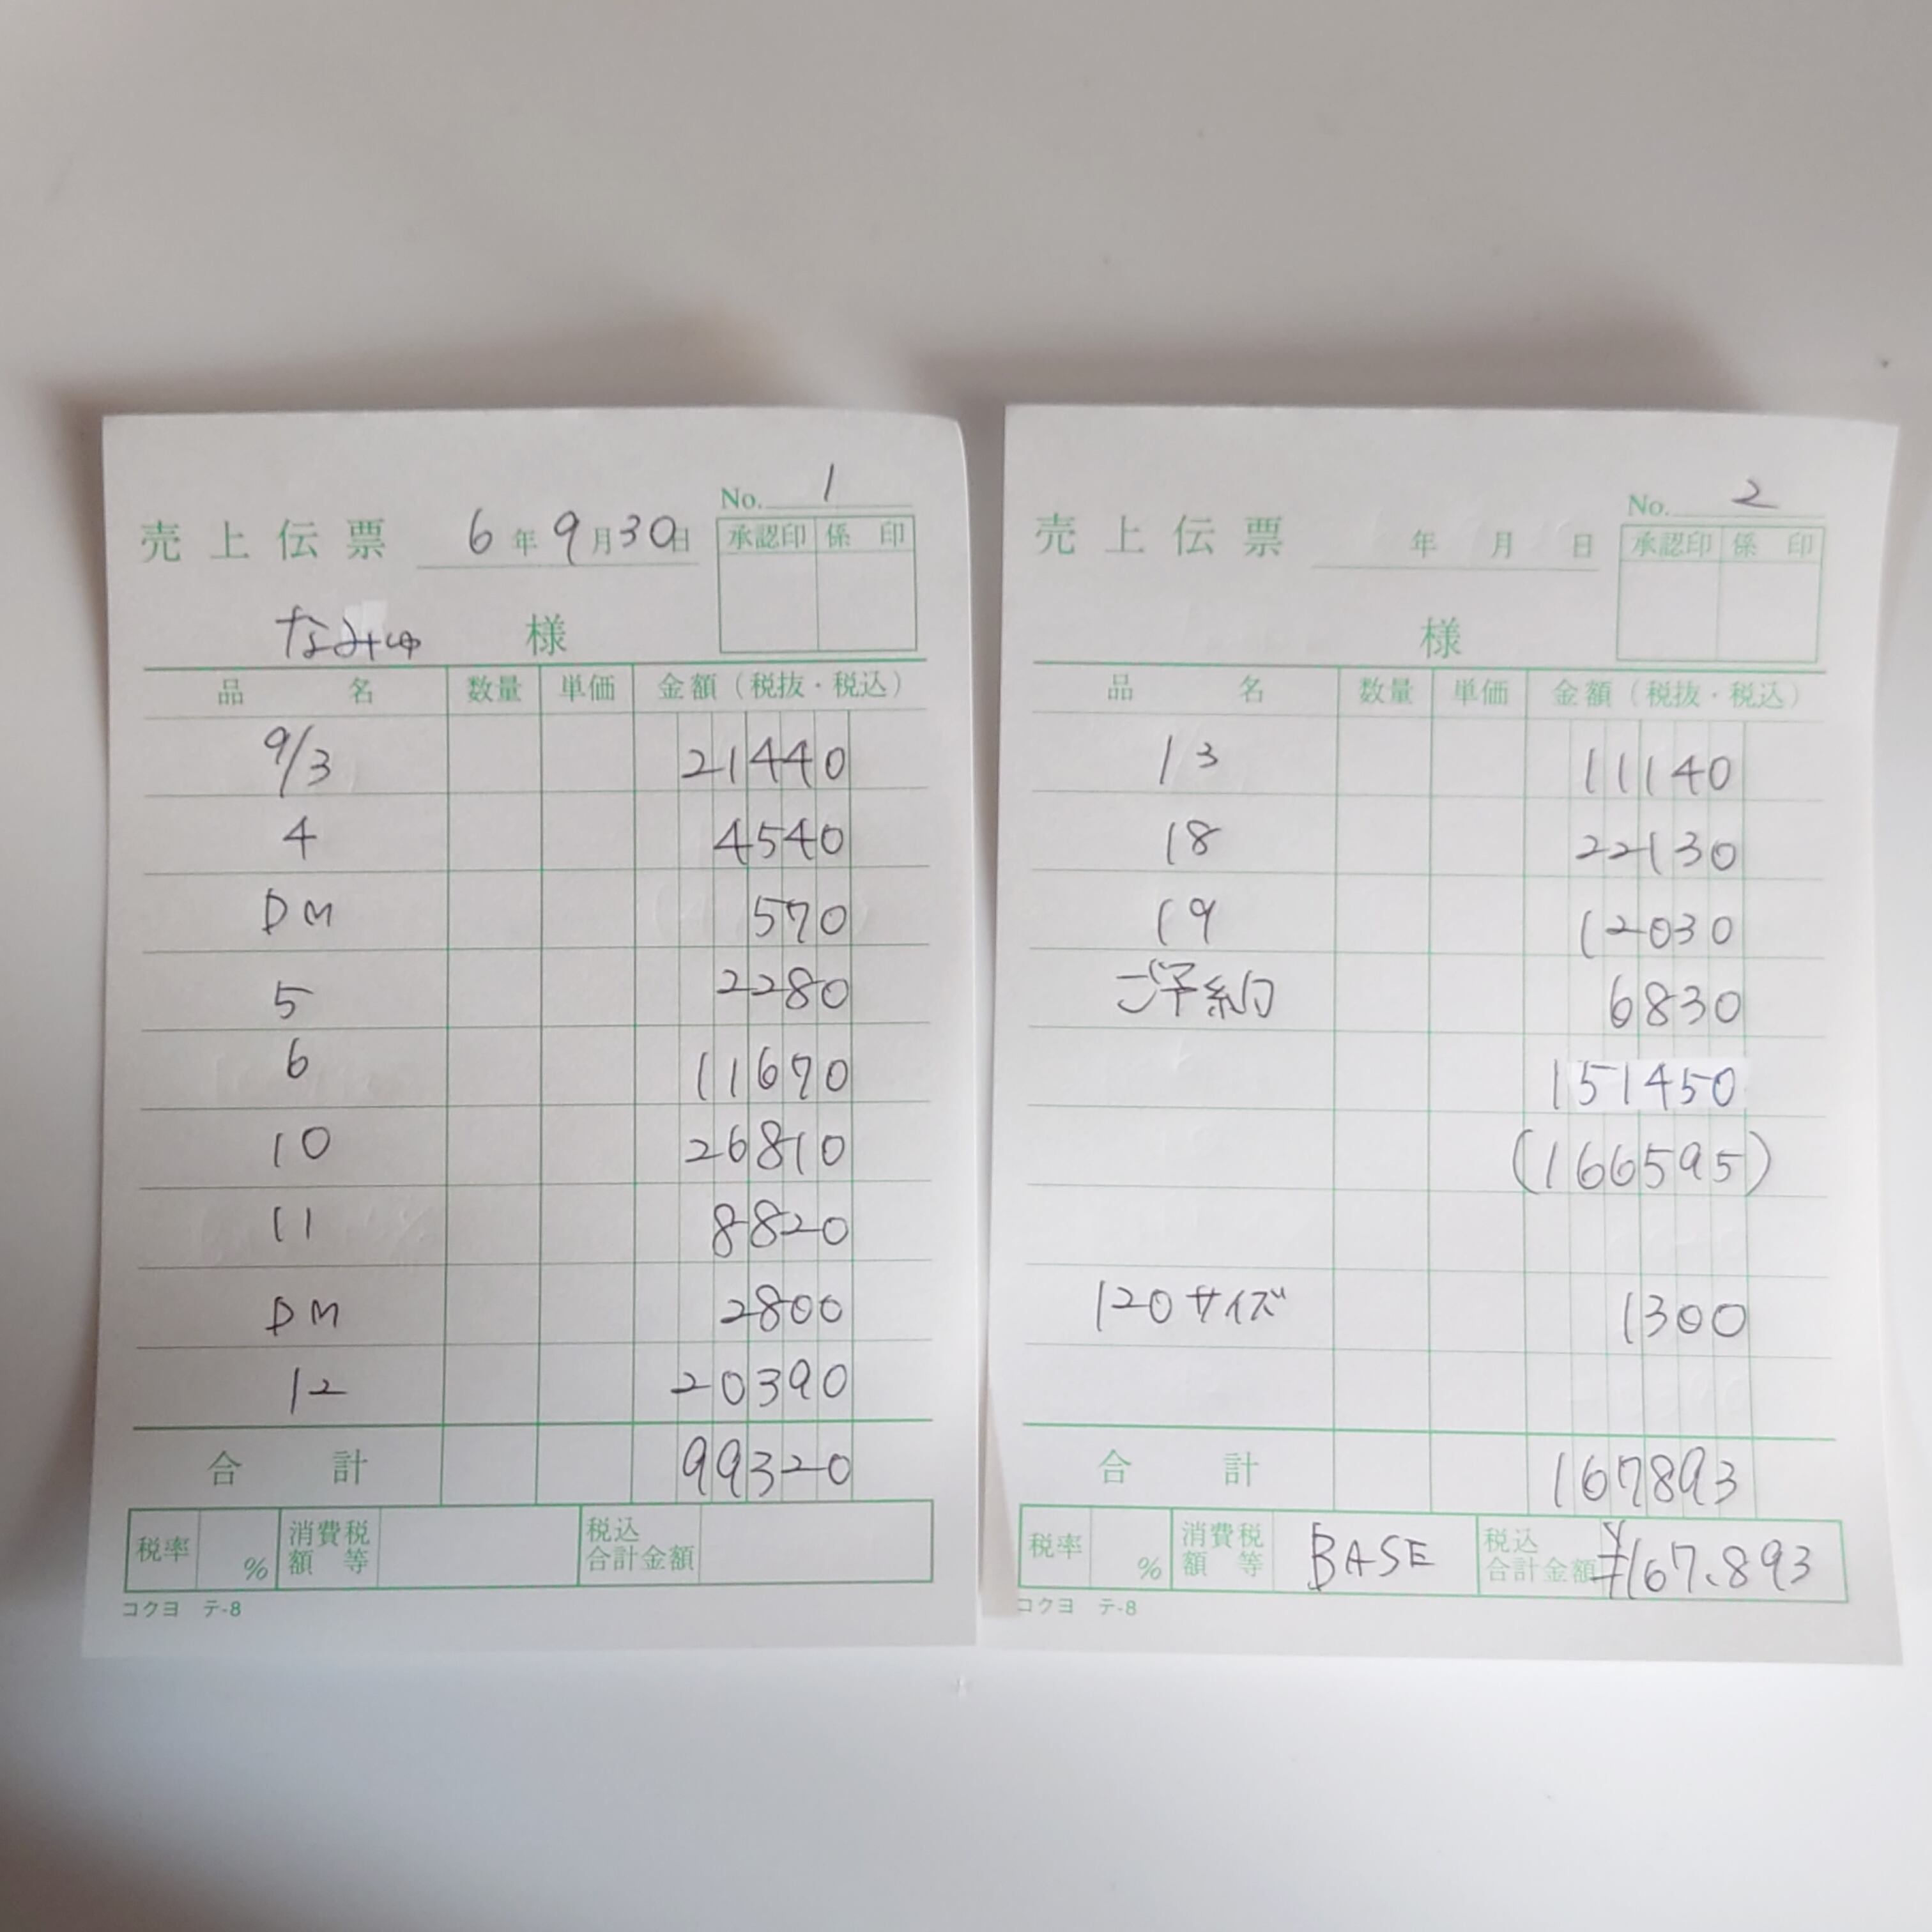 No. 1
売上伝票 6年9月30日
承認印 係印
なみゅ 様
品名 数量 単価 金額(税抜・税込)
9/3 21440
4 4540
DM 570
5 2280
6 11670
10 26810
11 8820
DM 2800
12 20390
合計 99320
税率 % 消費税額等 税込合計金額
コクヨ テ-8
No. 2
売上伝票 年 月 日
承認印 係印
様
品名 数量 単価 金額(税抜・税込)
13 11140
18 22130
19 12030
ご予約 6830
151450
(166595)
120サイズ 1300
合計 167893
税率 % 消費税額等 BASE 税込合計金額 ¥167.893
コクヨ テ-8